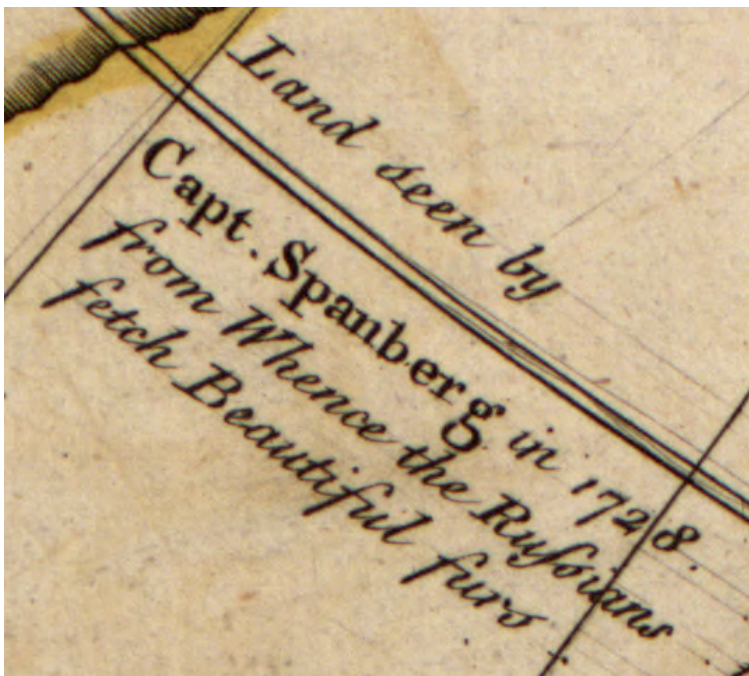 Land seen by
Capt. Spanberg in 1728.
from Whence the Ruſsians
fetch Beautiful furs